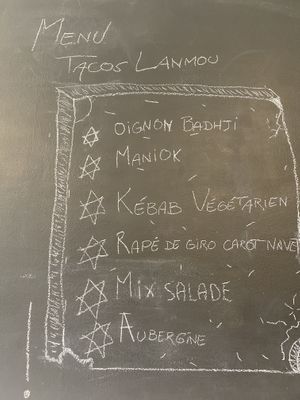 MENU
TACOS LANMOU
OIGNON BADHJI
MANIOK
KÉBAB VÉGÉTARIEN
RAPÉ DE GIRO CAROT NAVE
MIX SALADE
AUBERGINE